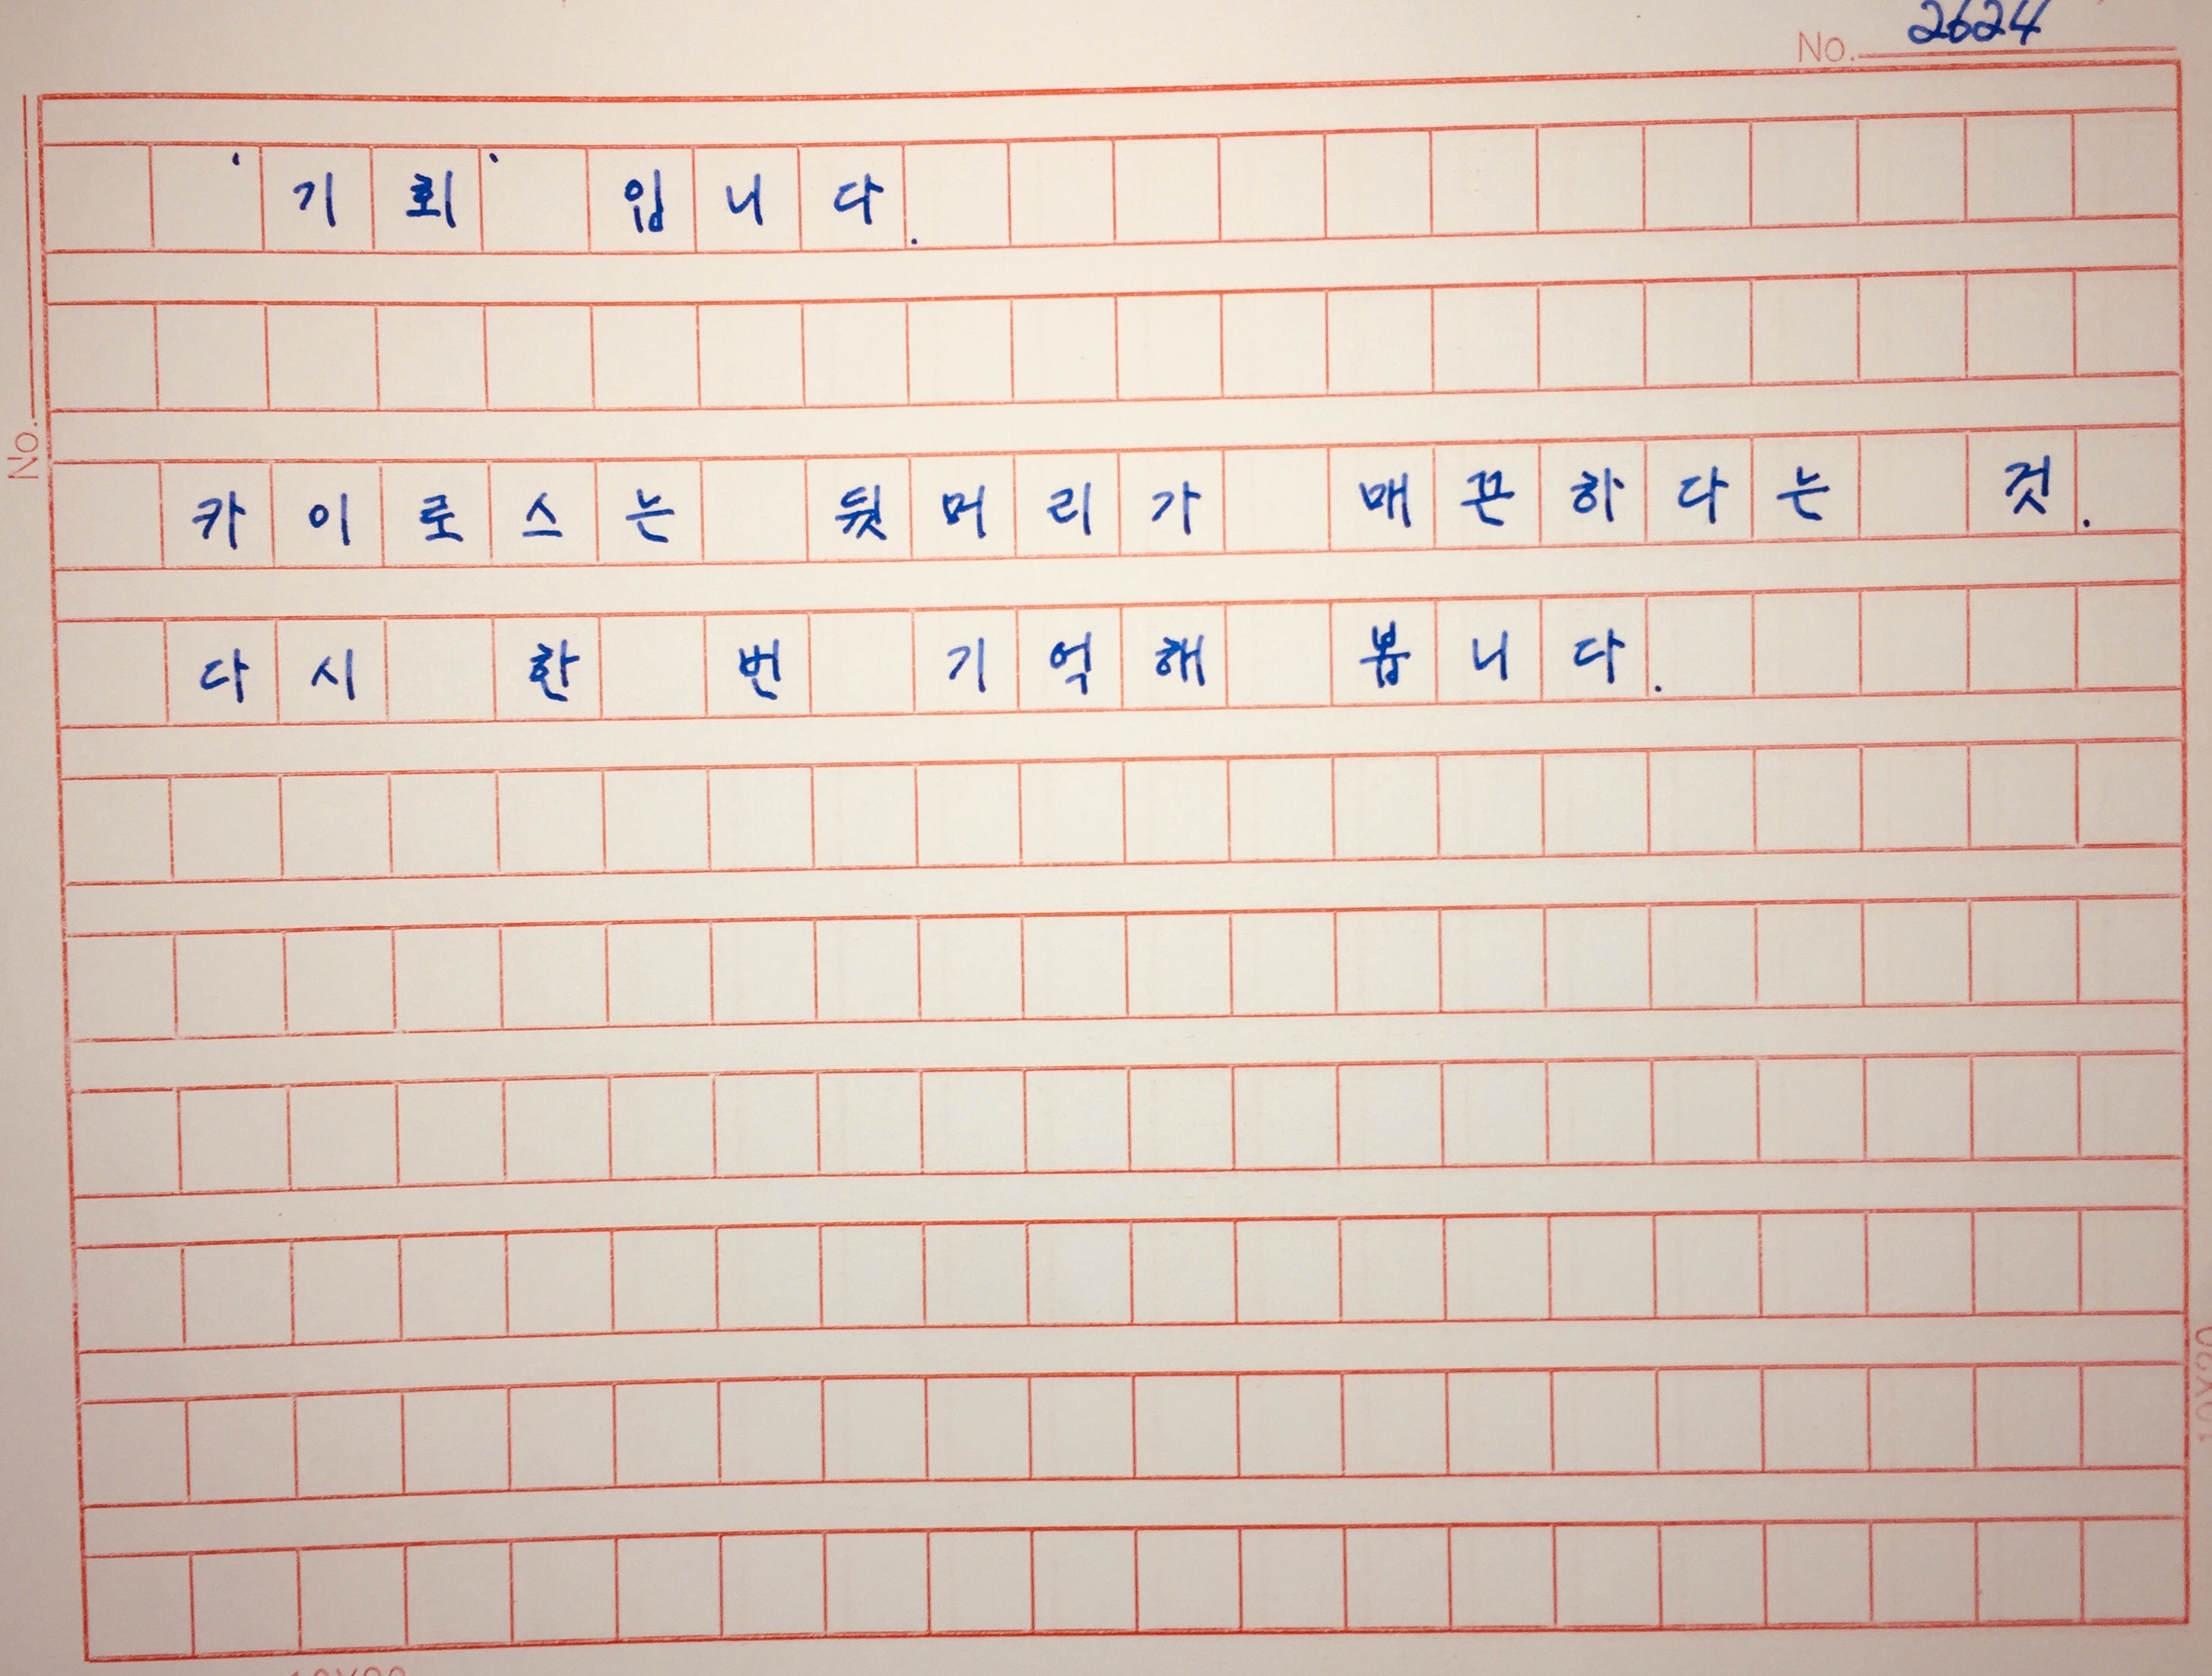 No. 2624
'기회' 입니다.
카이로스는 뒷머리가 매끈하다는 것.
다시 한 번 기억해 봅니다.
No.